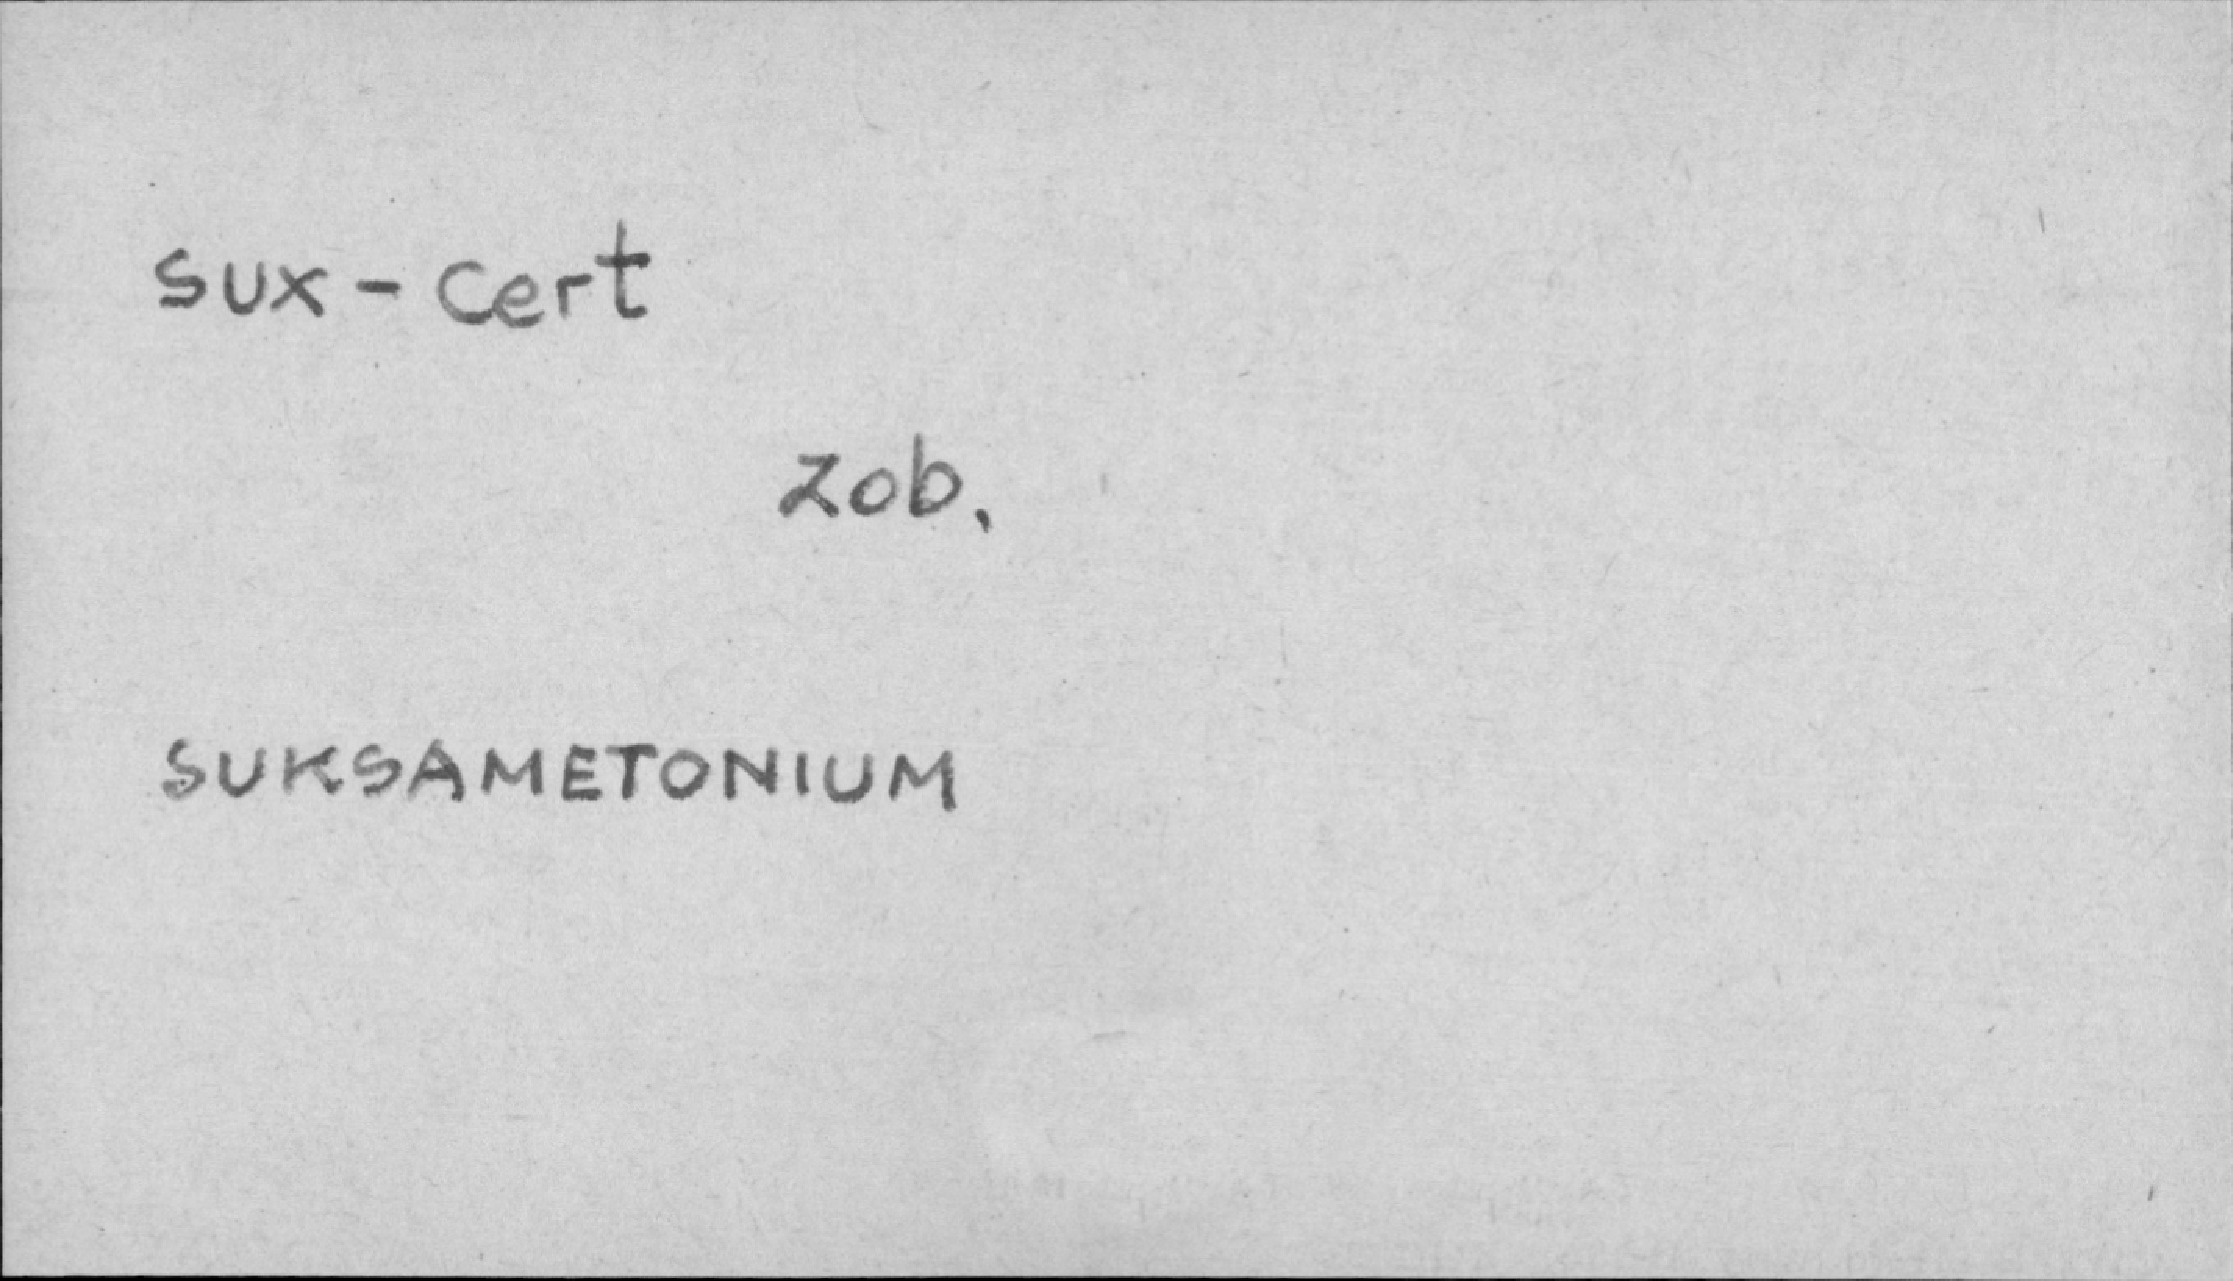 sux - cert
zob.
SUKSAMETONIUM